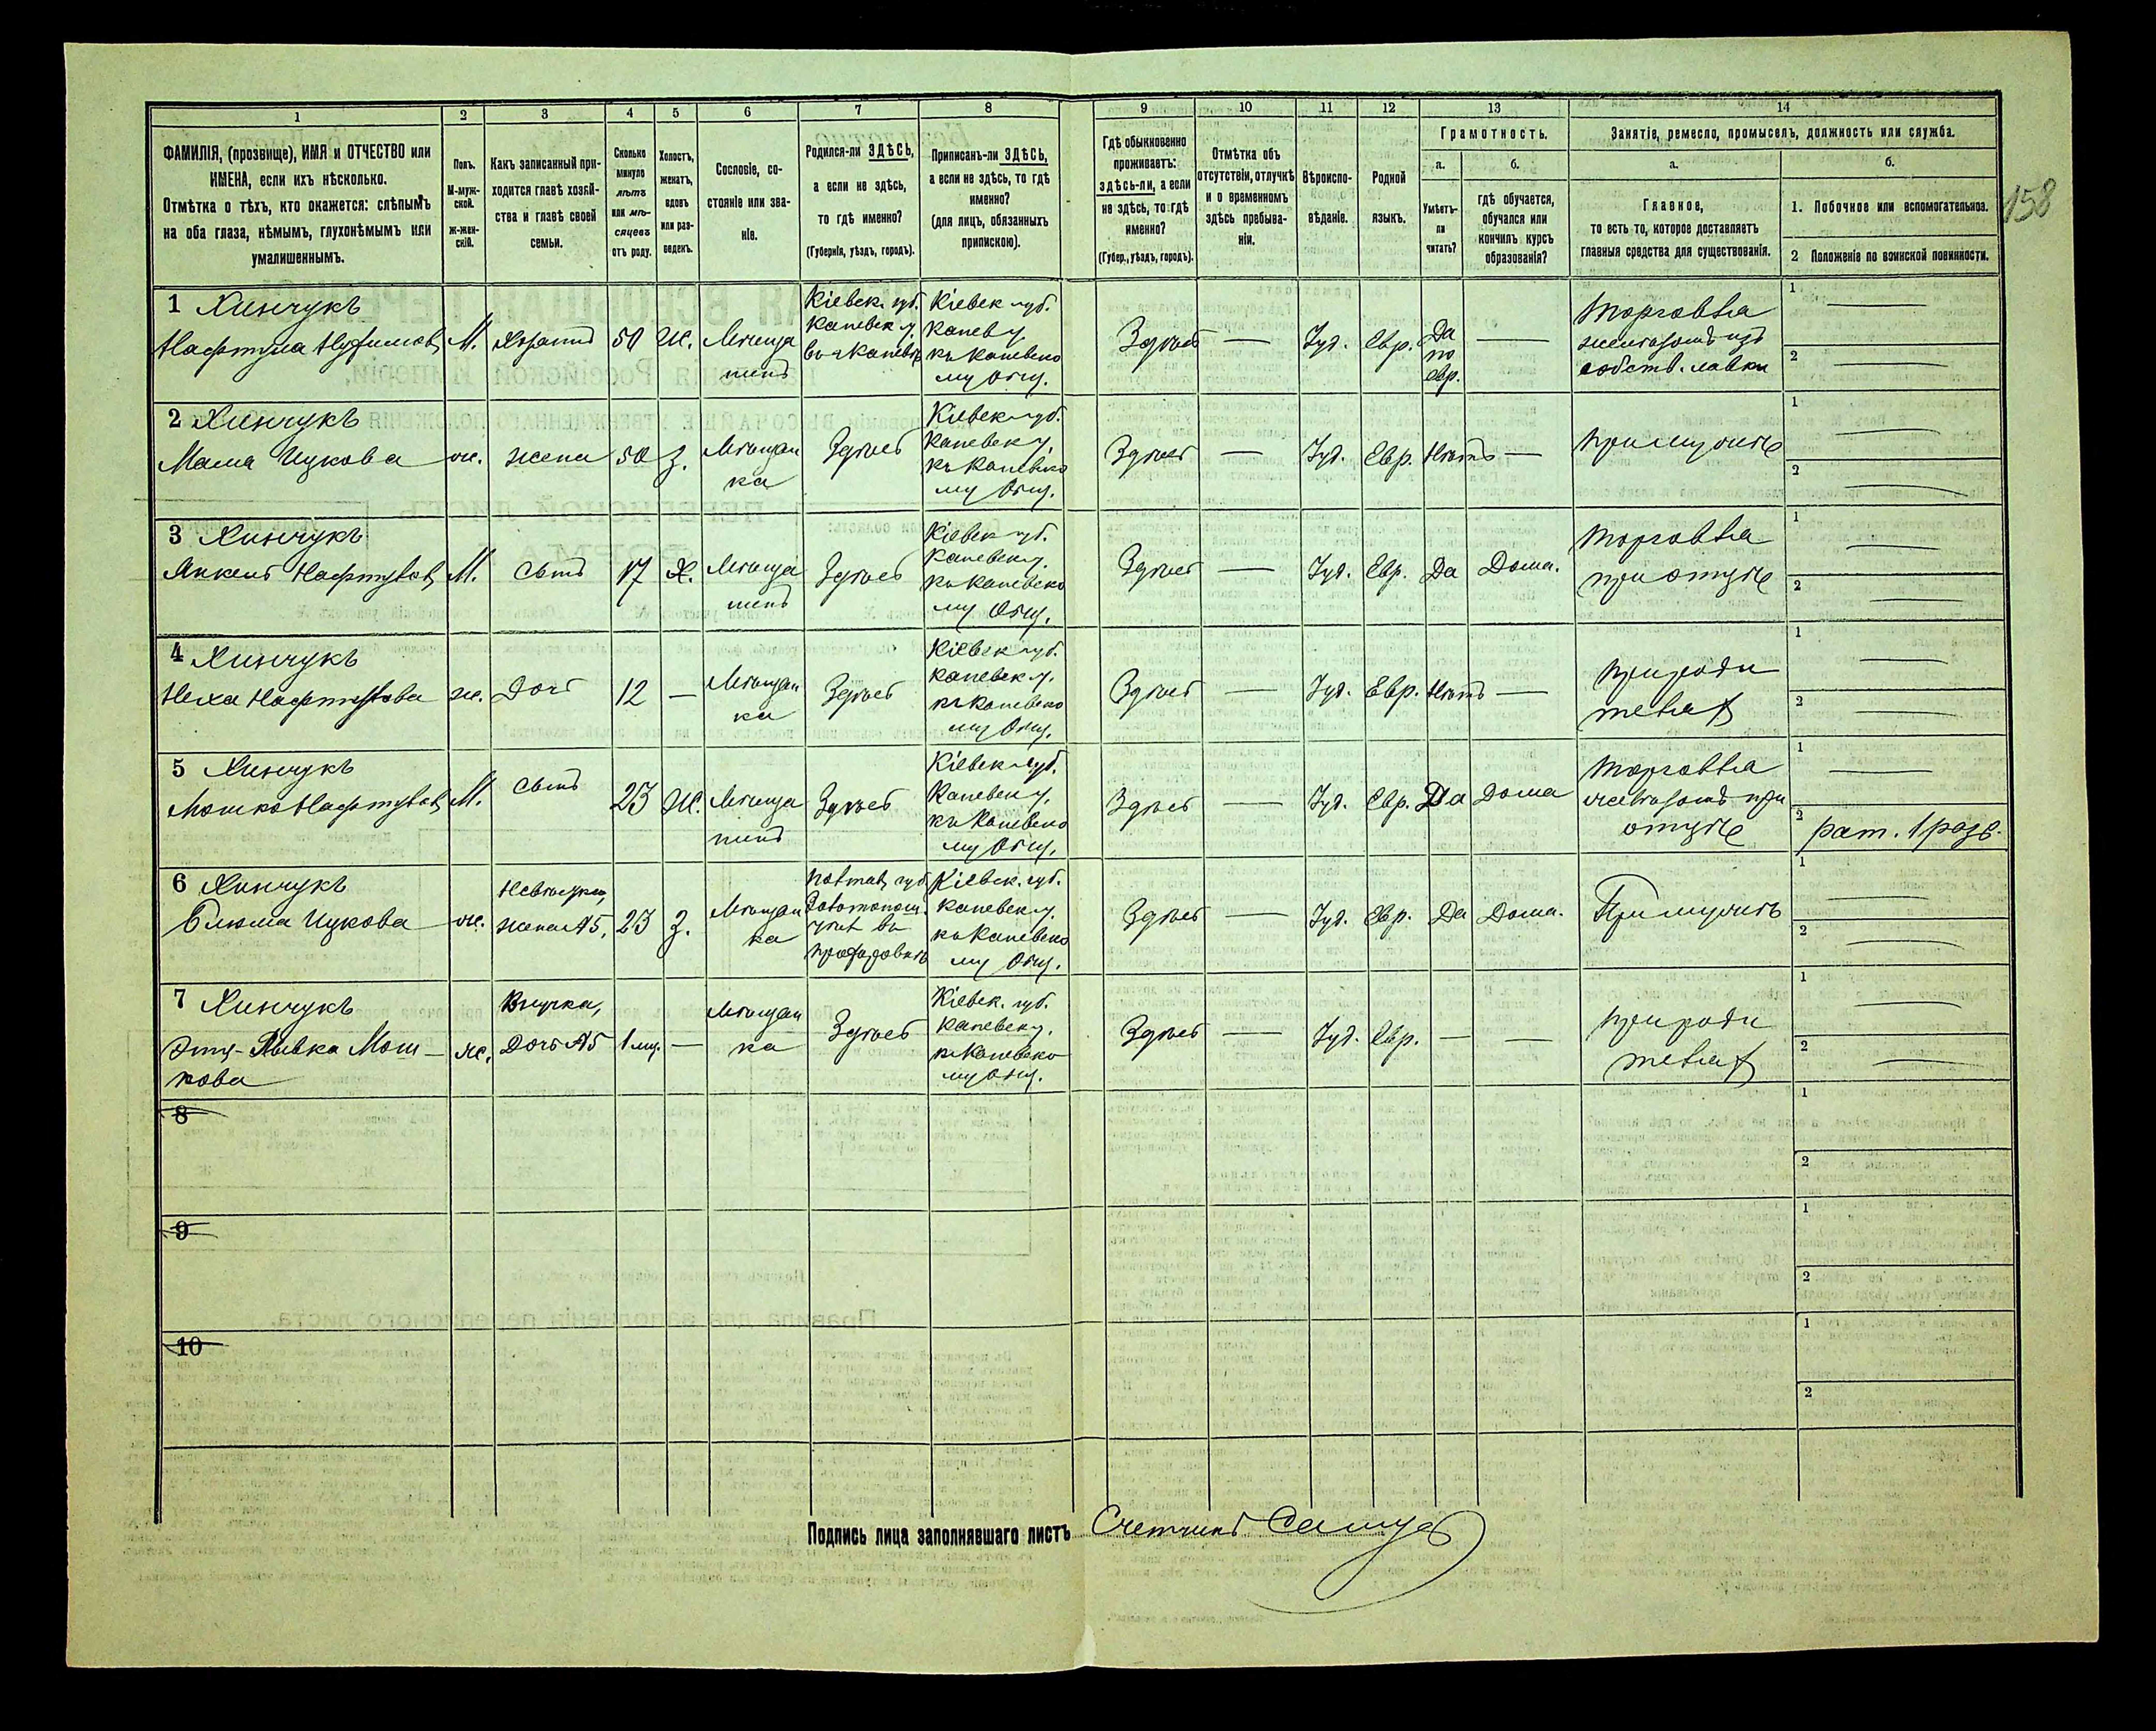 158
1 2 3 4 5 6 7 8 9 10 11 12 13 14
ФАМИЛІЯ, (прозвище), ИМЯ и ОТЧЕСТВО или
ИМЕНА, если ихъ нѣсколько.
Отмѣтка о тѣхъ, кто окажется: слѣпымъ
на оба глаза, нѣмымъ, глухонѣмымъ или
умалишеннымъ.
Полъ.
М-муж-
ской.
ж-жен-
скій.
Какъ записанный при-
ходится главѣ хозяй-
ства и главѣ своей
семьи.
Сколько
минуло
лѣтъ
или мѣ-
сяцевъ
отъ роду.
Холостъ,
женатъ,
вдовъ
или раз-
веденъ.
Сословіе, со-
стояніе или зва-
ніе.
Родился-ли ЗДѢСЬ,
а если не здѣсь,
то гдѣ именно?
(Губернія, уѣздъ, городъ).
Приписанъ-ли ЗДѢСЬ,
а если не здѣсь, то гдѣ
именно?
(для лицъ, обязанныхъ
припискою).
Гдѣ обыкновенно
проживаетъ:
здѣсь-ли, а если
не здѣсь, то гдѣ
именно?
(Губер., уѣздъ, городъ).
Отмѣтка объ
отсутствіи, отлучкѣ
и о временномъ
здѣсь пребыва-
ніи.
Вѣроиспо-
вѣданіе.
Родной
языкъ.
Грамотность.
а.
Умѣетъ-
ли
читать?
б.
гдѣ обучается,
обучался или
кончилъ курсъ
образованія?
Занятіе, ремесло, промыселъ, должность или служба.
а.
Главное,
то есть то, которое доставляетъ
главныя средства для существованія.
б.
1. Побочное или вспомогательное.
2 Положеніе по воинской повинности.
1 Хинчукъ
Нафтула
М.
50
Ж.
Мѣща
нинъ
Кіевск. губ.
Каневск у.
Кіевск губ.
Канев у.
къ Каневско
му Общ.
Здѣсь
—
Іуд.
Евр.
Да
по
евр.
—
Торговля
желѣзомъ изъ
собств. лавки
1
2
2 Хинчукъ
Мама Ицкова
ж.
жена
50
З.
Мѣщан
ка
Здѣсь
Кіевск губ.
Каневск у.
къ Каневско
му Общ.
Здѣсь
—
Іуд.
Евр.
Нѣтъ
—
При мужѣ
1
2
3 Хинчукъ
Янкель Нафтулов
М.
Сынъ
17
Х.
Мѣща
нинъ
Здѣсь
Кіевск губ.
Каневск у.
къ Каневско
му Общ.
Здѣсь
—
Іуд.
Евр.
Да
Дома.
Торговля
при отцѣ
1
2
4 Хинчукъ
Неха Нафтулова
ж.
Дочь
12
—
Мѣщан
ка
Здѣсь
Кіевск губ.
Каневск у.
къ Каневско
му Общ.
Здѣсь
—
Іуд.
Евр.
Нѣтъ
—
При роди
теляхъ
1
2
5 Хинчукъ
Мошко Нафтулов
М.
Сынъ
23
Ж.
Мѣща
нинъ
Здѣсь
Кіевск губ.
Каневск у.
къ Каневско
му Общ.
Здѣсь
—
Іуд.
Евр.
Да
Дома
Торговля
желѣзомъ при
отцѣ
1
2 рат. 1 разр.
6 Хинчукъ
Блюма Ицкова
ж.
Невѣстка,
жена №5,
23
З.
Мѣщан
ка
Полтав губ
Золотонош.
Кіевск. губ.
Каневск у.
къ Каневско
му Общ.
Здѣсь
—
Іуд.
Евр.
Да
Дома.
При мужѣ
1
2
7 Хинчукъ
Эти-Ривка Мош-
кова
ж.
Внучка,
Дочь №5
1 мц.
—
Мѣщан
ка
Здѣсь
Кіевск. губ.
Каневск у.
къ Каневско
му Общ.
Здѣсь
—
Іуд.
Евр.
—
—
При роди
теляхъ
1
2
8
1
2
9
1
2
10
1
2
Подпись лица заполнявшаго листъ Счетчикъ